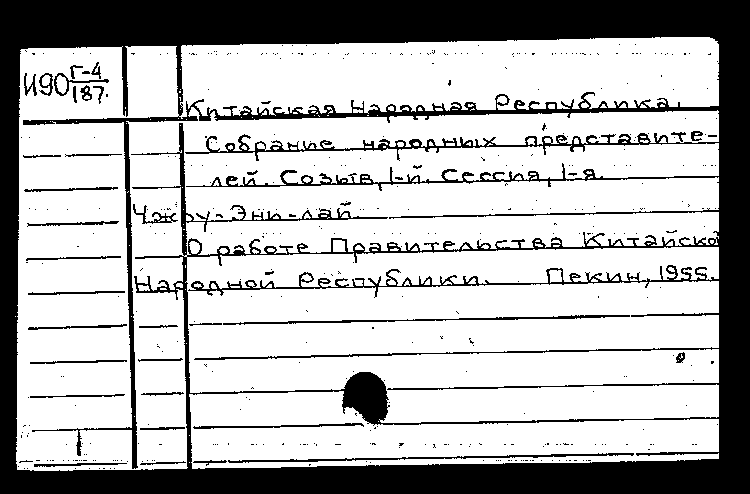 И90 Г-4
187.
Китайская Народная Республика.
Собрание народных представите-
лей. Созыв, 1-й. Сессия, 1-я.
Чжоу-Эни-лай.
О работе Правительства Китайской
Народной Республики. Пекин, 1955.